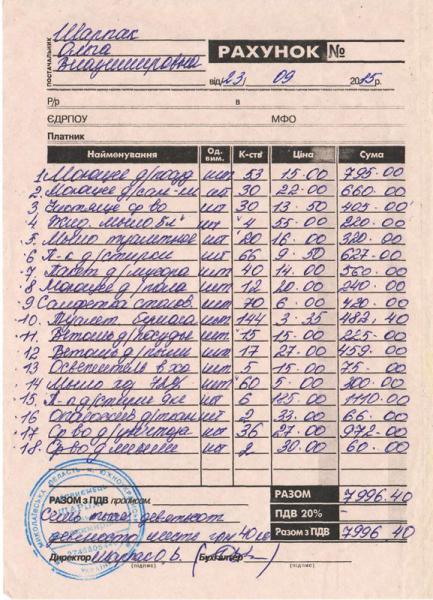 Шаллак
Олга
Владимировна
ПОСТАЧАЛЬНИК
РАХУНОК №
від 23 09 2015р.
Р/р в
ЄДРПОУ МФО
Платник
Найменування Од. вим. К-сть Ціна Сума
1. Моющее д/посуд шт 53 15.00 795.00
2. Моющее д/сан-ки шт 30 22.00 660.00
3. Чистяще ср-во шт 30 13.50 405.00
4. Жид. мыло 5л шт 4 55.00 220.00
5. Мыло туалетное шт 20 16.00 320.00
6. П-к д/стирки шт 66 9.50 627.00
7. Пакет д/мусора шт 40 14.00 560.00
8. Моющее д/пола шт 12 20.00 240.00
9. Салфетка столов. шт 70 6.00 420.00
10. Туалет бумага шт 144 3.35 482.40
11. Ветошь д/посуды шт 15 15.00 225.00
12. Ветошь д/полы шт 17 27.00 459.00
13. Освежитель шт 5 15.00 75.00
14. Мыло хоз 72% шт 60 5.00 300.00
15. П-к д/стирки шт 6 1110.00
16. д/ткани шт 2 33.00 66.00
17. Ср-во шт 36 27.00 972.00
18. Ср-во шт 2 30.00 60.00
РАЗОМ 7996.40
РАЗОМ з ПДВ прописом
ПДВ 20%
Семь тысяч девятсот
девяносто шесть грн 40 коп
Разом з ПДВ 7996.40
Директор Бухгалтер
(підпис) (підпис)